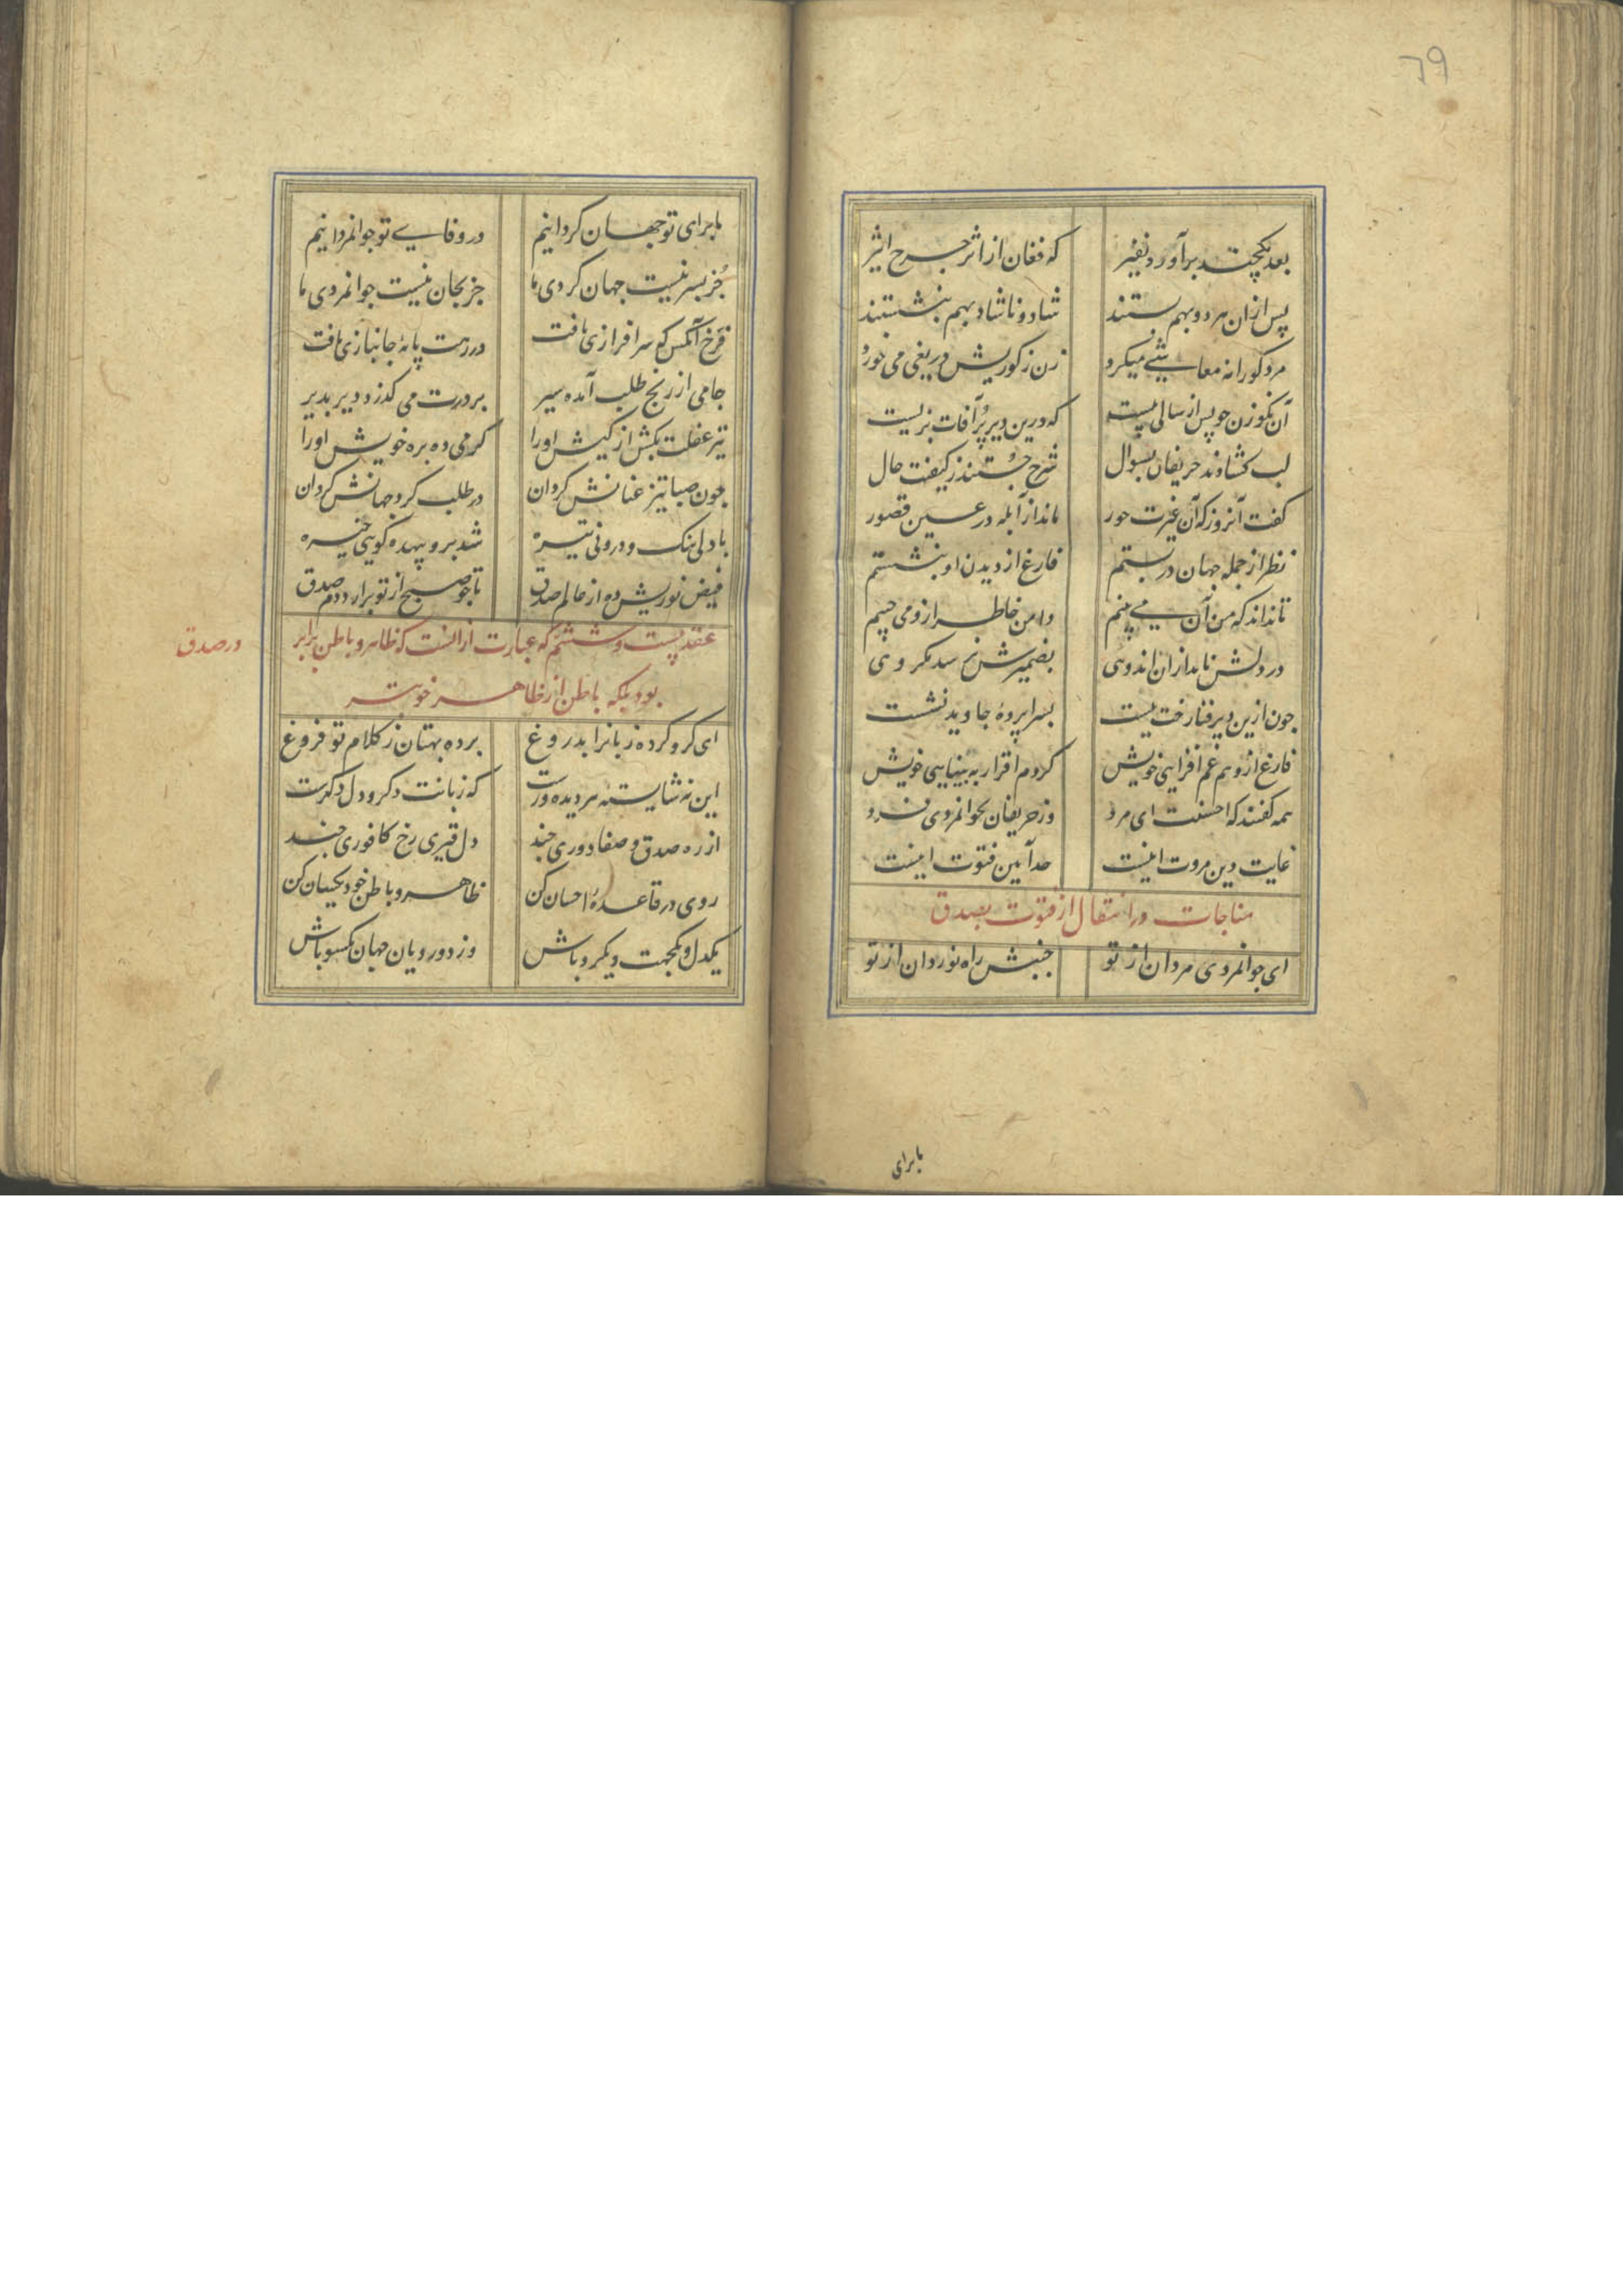 ٦٩
بعد یکچند برآورد نفیر که فغان از اثر چرخ اثیر
پس ازان هر دو بهم بستند شاد و ناشاد بهم بنشستند
مرد کورانه معاشی میکرد زن ز کوریش دریغی می خورد
آن نکو زن چو پس از سالی بیست که درین دیر پرآفات بزیست
لب کشادند حریفان بسوال شرح جستند ز کیفیت حال
کفت آنروز که آن غیرت حور ماند از آبله در عین قصور
نظر از جمله جهان در بستم فارغ از دیدن او بنشستم
تا نداند که من آن می بینم دامن خاطر ازو می چینم
در دلش ناید ازان اندوهی بضمیرش نرسد مکروهی
چون ازین دیر فنا رخت ببست بسراپرده جاوید نشست
فارغ از وهم غم افزایی خویش کردم اقرار به بینایی خویش
همه کفتند که احسنت ای مرد وز حریفان بجوانمردی فرد
غایت دین مروت اینست حد آیین فتوت اینست
مناجات در انتقال از فتوت بصدق
ای جوانمردی مردان از تو جنبش راه نوردان از تو
ما برای
ما برای تو جهان کردانیم در وفای تو جوانمردانیم
جز بسر نیست جهان کردی ما جز بجان نیست جوانمردی ما
فرخ آنکس که سرافرازی یافت در رهت پایه جانبازی یافت
جامی از رنج طلب آمده سیر بر درت می کذرد دیر بدیر
تیر غفلت بکش از کیش اورا کرمی ده بره خویش اورا
چون صبا تیز عنانش کردان در طلب کرد جهانش کردان
با دلی تنک و درونی تیره شد بر و بیهده کویی خیره
فیض نوریش ده از عالم صدق تا چو صبح از تو برآرد دم صدق
عقد بیست و ششم که عبارت ازانست که ظاهر و باطن برابر
در صدق
بود بلکه باطن از ظاهر خوبتر
ای کرو کرده زبانرا بدروغ برده بهتان ز کلام تو فروغ
این نه شایسته هر دیده ورست که زبانت دکر و دل دکرست
از ره صدق و صفا دوری چند دل قیری رخ کافوری چند
روی در قاعده احسان کن ظاهر و باطن خود یکسان کن
یکدل و یکجهت و یکرو باش وز دورویان جهان یکسو باش